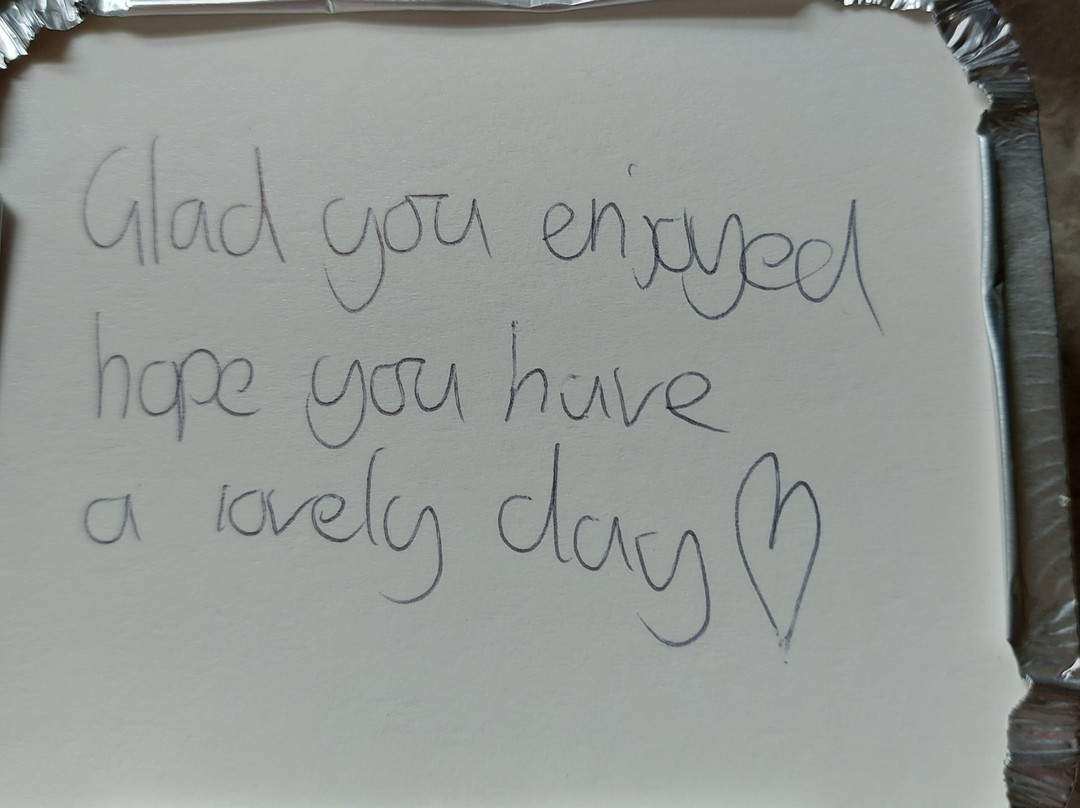 Glad you enjoyed
hope you have
a lovely day ♡